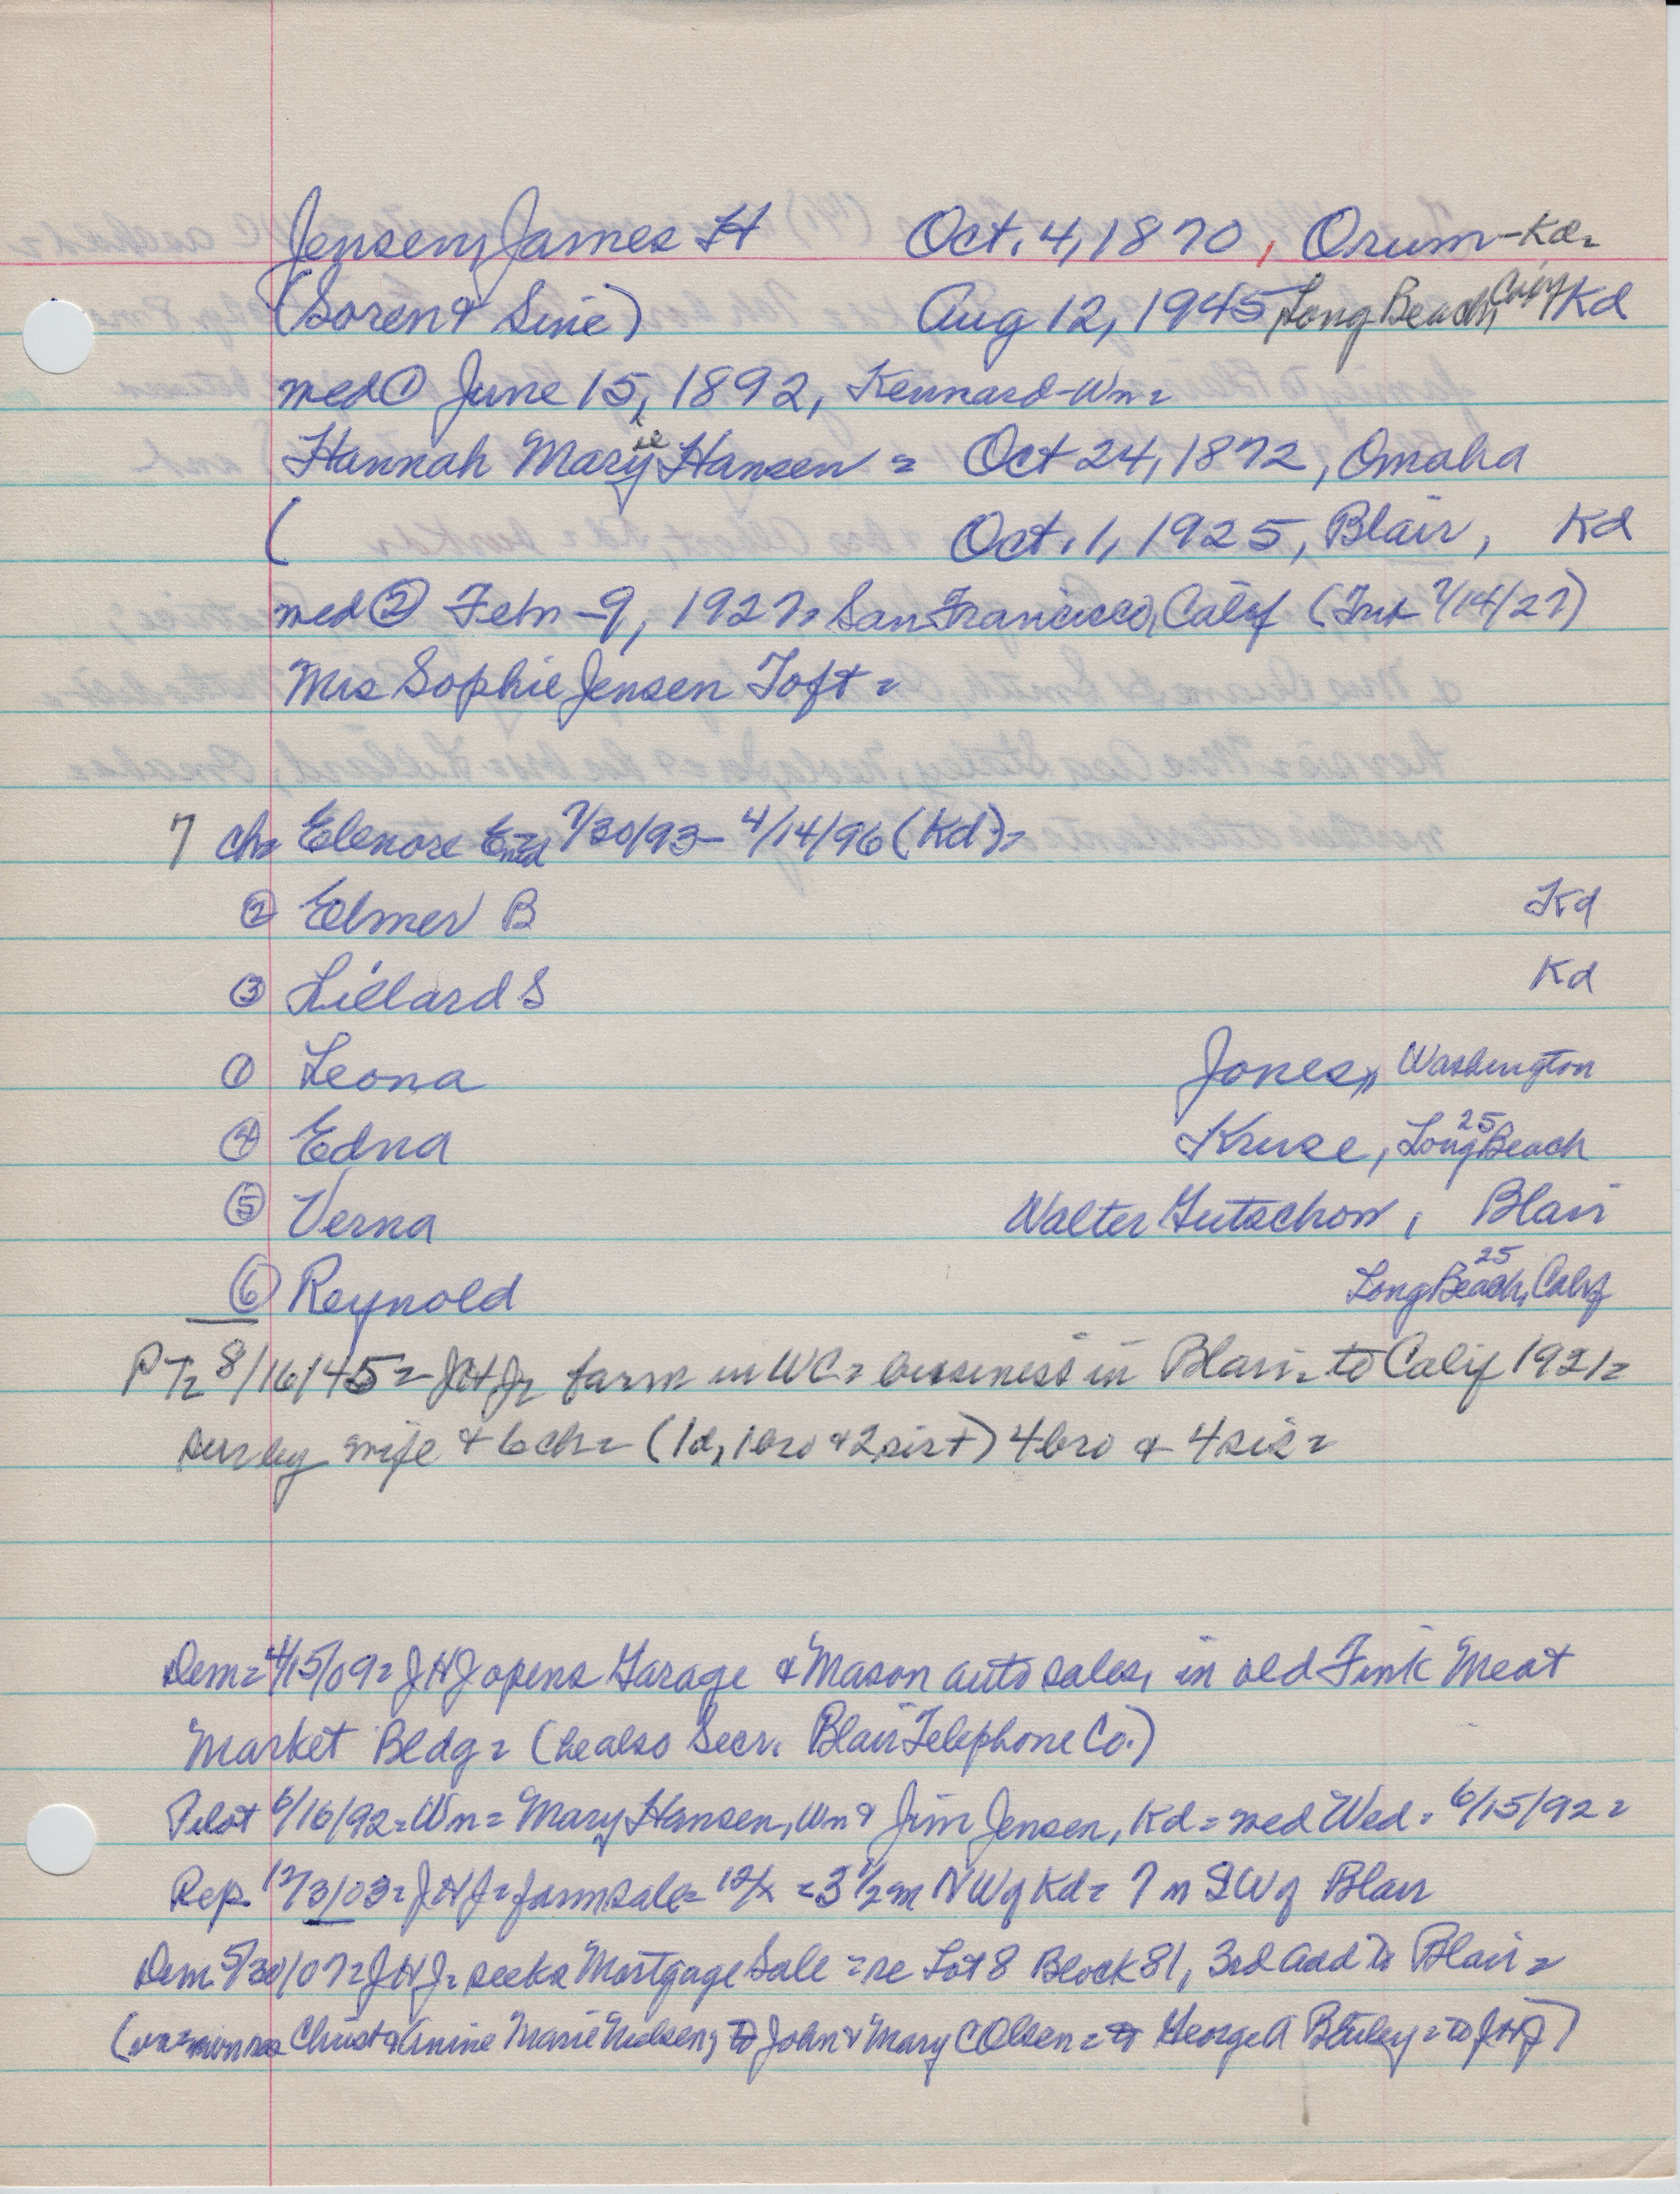 Jensen, James H Oct. 4, 1870, Orum - Kd =
(Soren & Sine) Aug 12, 1945, Long Beach, Calif Kd
med ① June 15, 1892, Kennard - Wn =
Hannah Mary ie Hansen = Oct 24, 1872, Omaha
( Oct. 1, 1925, Blair, Kd
med ② Feb - 9, 1927, San Francisco, Calif ( 7/14/27)
Mrs Sophie Jensen Toft =
7 ch = Elenore Enid 7/30/93 - 4/14/96 (Kd) =
② Elmer B Kd
③ Lillard S Kd
① Leona Jones, Washington
④ Edna Kruse, Long Beach 25
⑤ Verna Walter Gutschow, Blair
⑥ Reynold Long Beach, Calif 25
PT = 8/16/45 = JHJ = farm in WC = business in Blair = to Calif 1921 =
sur by wife & 6 ch = (1d, 1 bro & 2 sis +) 4 bro & 4 sis =
Dem = 4/15/09 = JHJ opens Garage & Mason auto sales, in old Fink Meat
Market Bldg = (he also Secr. Blair Telephone Co.)
Pilot 6/16/92 = Wn = Mary Hansen, Wn & Jim Jensen, Kd = med Wed. 6/15/92 =
Rep. 12/3/03 = JHJ = farm sale = 12/x = 3 1/2 m NW of Kd = 7 m SW of Blair
Dem 5/30/07 = JHJ = seeks Mortgage Sale = re Lot 8 Block 81, 3rd add to Blair =
( Christ & Anine Marie Nielsen, to John & Mary C Olsen = to George A = to JHJ)